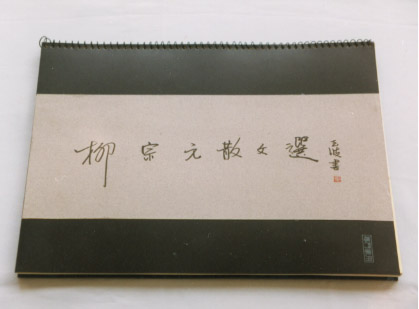 柳宗元散文選